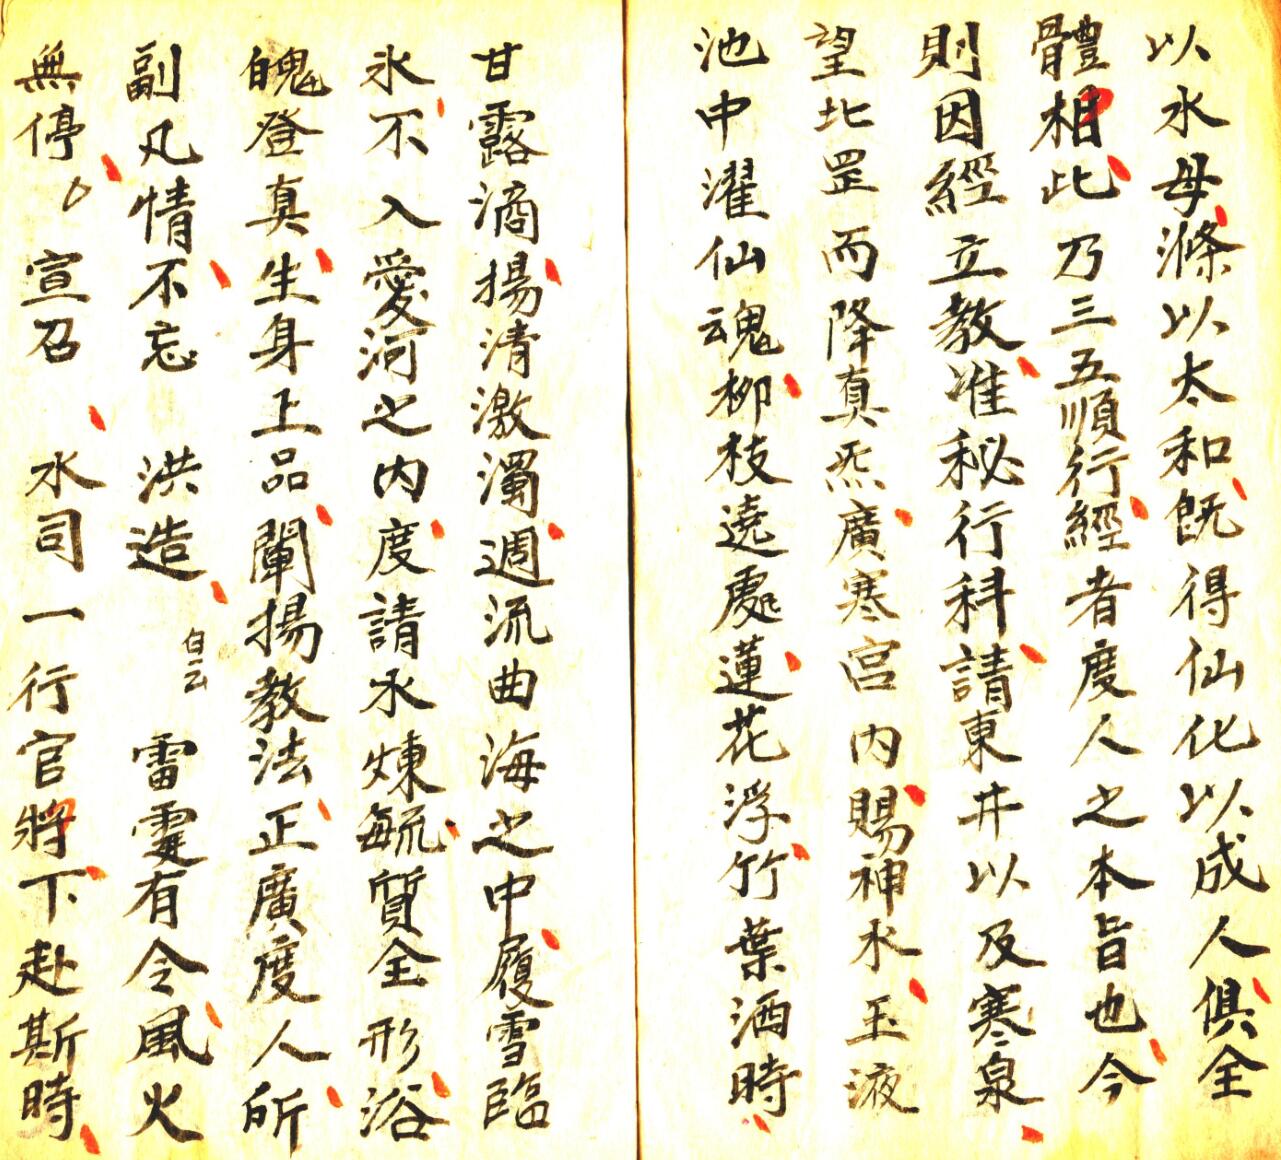 以水母滌以太和旣得仙化以成人俱全
體相此乃三五順行經者度人之本旨也今
則因經立教准秘行科請東井以及寒泉
望北罡而降真炁廣寒宮內賜神水玉液
池中濯仙魂柳枝遶處蓮花浮竹葉洒時
甘露滴揚清激濁週流曲海之中履雪臨
氷不入愛河之內度請水煉毓質全形浴
魄登真生身上品闡揚教法正廣度人所
副凡情不忘洪造
白云
雷霆有令風火
無停
宣召水司一行官將下赴斯時